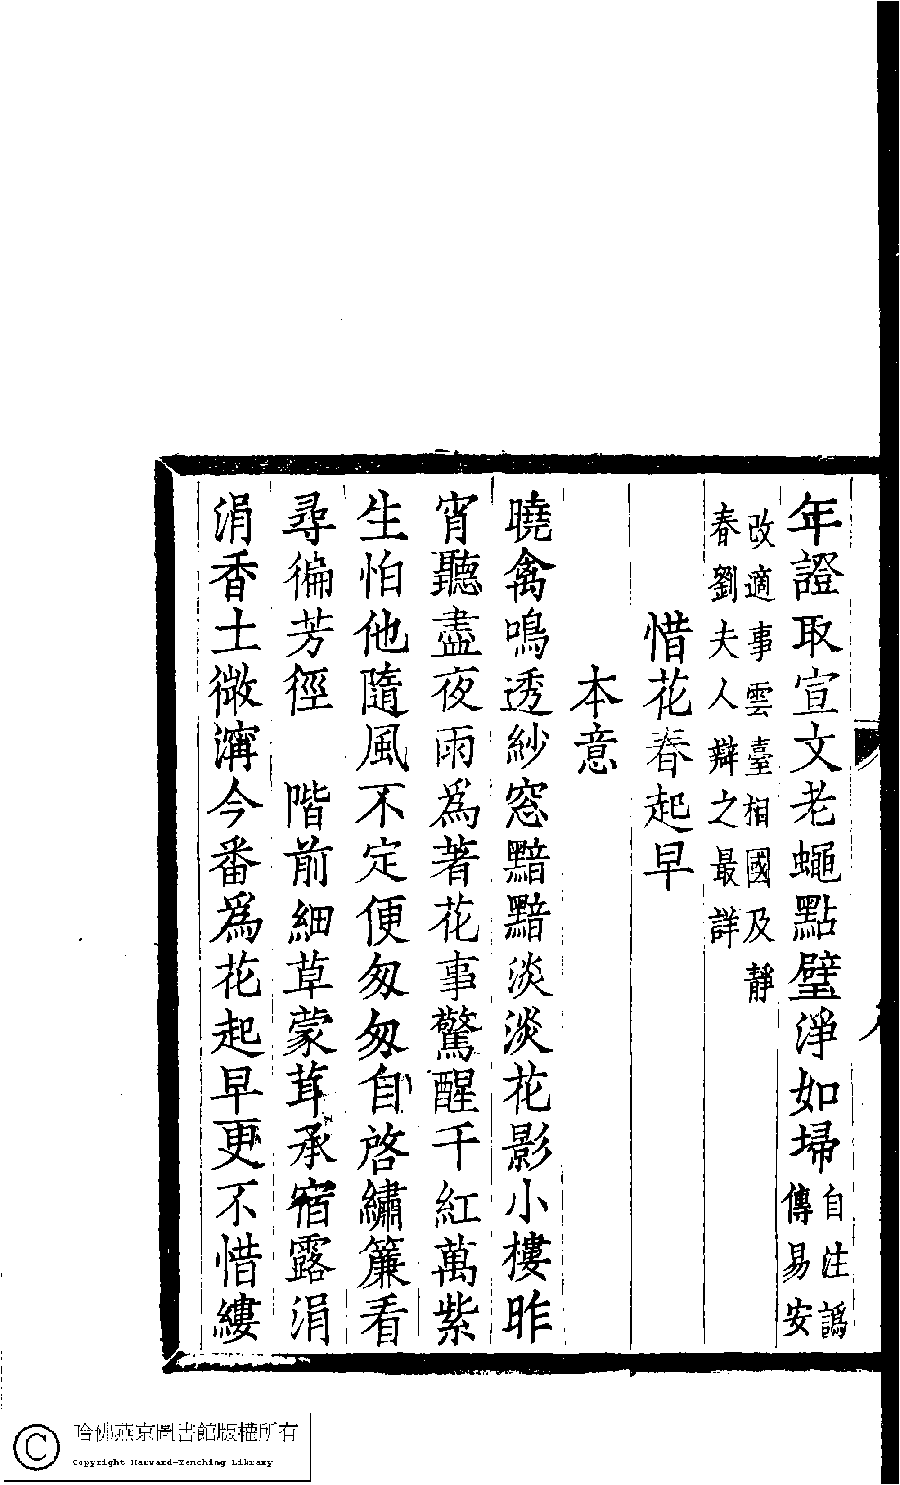 年證取宣文老蠅點璧淨如埽自注譌傳易安
改適事雲臺相國及靜春劉夫人辯之最詳
惜花春起早
本意
曉禽鳴透紗窓黯黯淡淡花影小樓昨
宵聽盡夜雨爲著花事驚醒千紅萬紫
生怕他隨風不定便匆匆自啓繡簾看
尋徧芳徑　階前細草蒙茸承宿露涓
涓香土微濘今番爲花起早更不惜縷
哈佛燕京圖書館版權所有
Copyright Harvard-Yenching Library